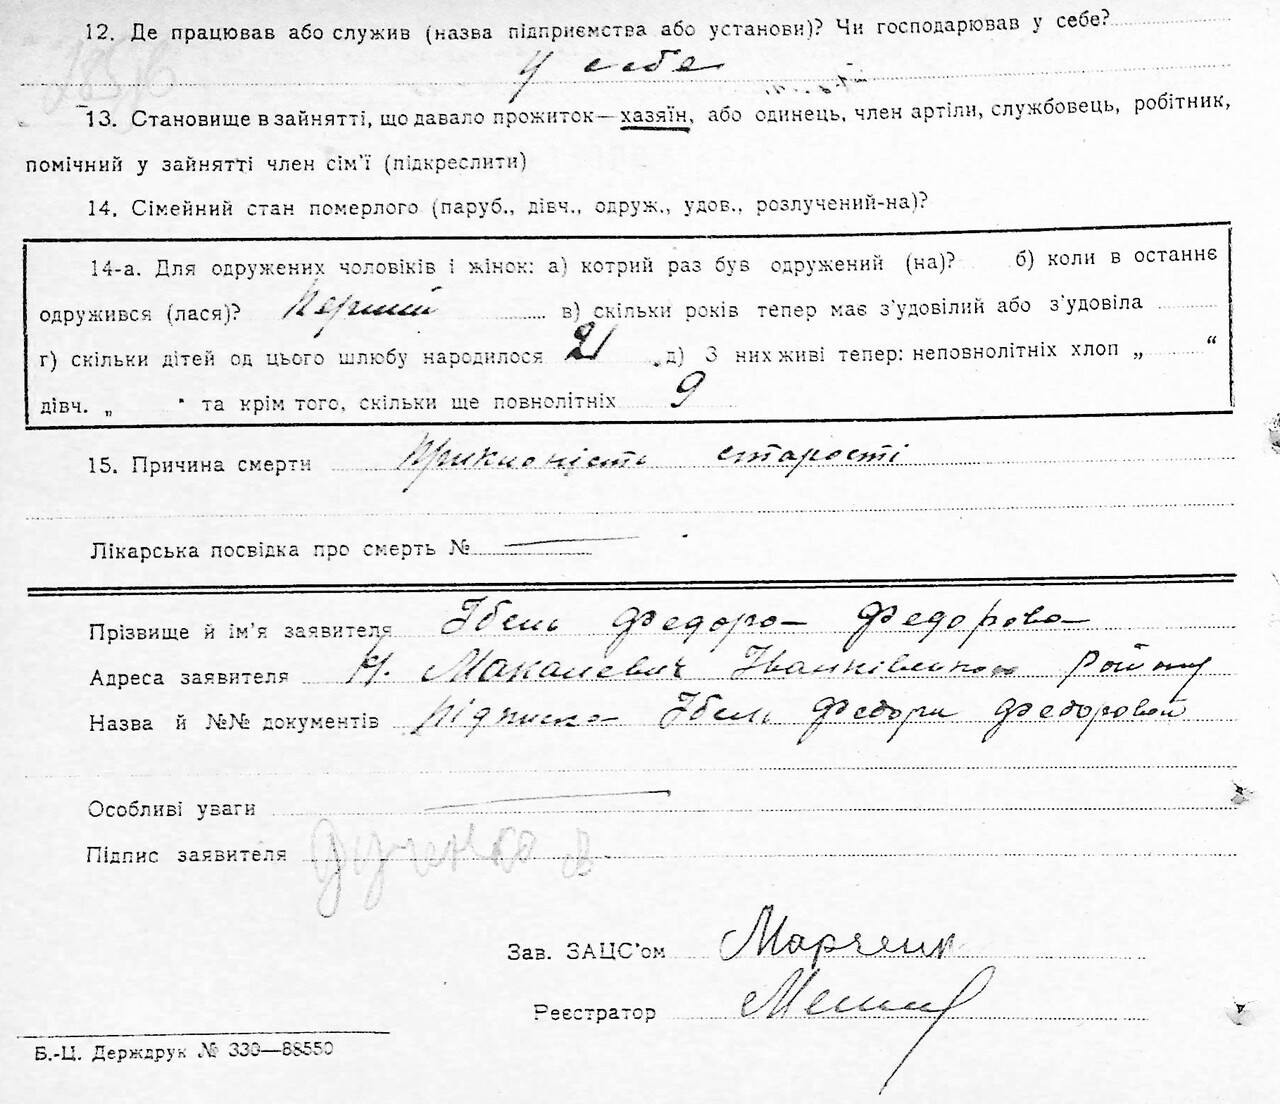 12. Де працював або служив (назва підприємства або установи)? Чи господарював у себе?
У себе
13. Становище в зайнятті, що давало прожиток—хазяїн, або одинець, член артіли, службовець, робітник,
помічний у зайнятті член сім'ї (підкреслити)
14. Сімейний стан померлого (паруб., дівч., одруж., удов., розлучений-на)?
14-а. Для одружених чоловіків і жінок: а) котрий раз був одружений (на)? б) коли в останнє
одружився (лася)? Перший в) скільки років тепер має з'удовілий або з'удовіла
г) скільки дітей од цього шлюбу народилося 21 д) З них живі тепер: неповнолітніх хлоп „ “
дівч. „ " та крім того, скільки ще повнолітніх 9
15. Причина смерти старості
Лікарська посвідка про смерть №
Прізвище й ім'я заявителя Ібель Федора Федорова
Адреса заявителя Макалевич Іванківського Району
Назва й №№ документів Підписка Ібель Федори Федоровой
Особливі уваги
Підпис заявителя
Зав. ЗАЦС'ом Марченк
Реєстратор
Б.-Ц. Держдрук № 330—88550